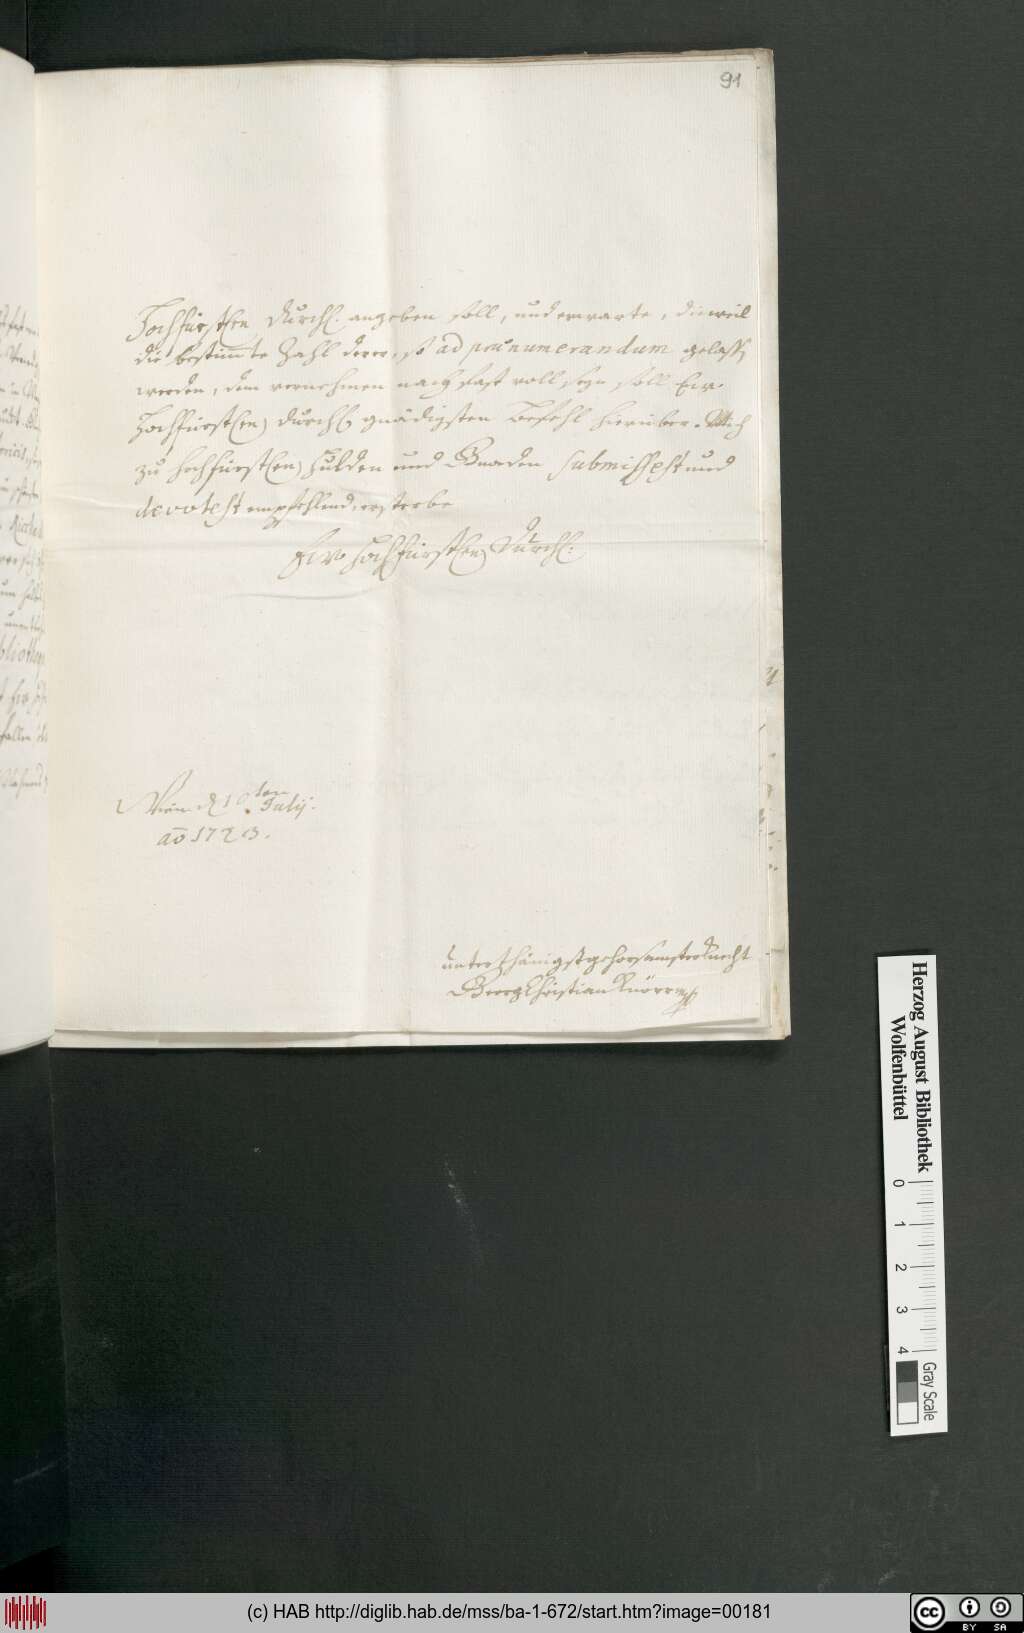 91
Hochfürstl(en) Durchl. angeben soll, und erwarte, dieweil
die bestim̅te Zahl derer, so ad praenumerandum gelassen
werden, dem vernehmen nach fast voll seyn soll Ew.
Hochfürstl(en) Durchl. gnädigsten Befehl hierüber. Mich
zu hochfürstl(en) Hulden und Gnaden submissest und
devotest empfehlend, ersterbe
Ew. Hochfürstl(en) Durchl.
Wien d. 10ten Julij.
ao 1723.
unterthänigst gehorsamster Knecht
Georg Christian Knörr
Herzog August Bibliothek
Wolfenbüttel
0 1 2 3 4
Gray Scale
(c) HAB http://diglib.hab.de/mss/ba-1-672/start.htm?image=00181
cc BY SA